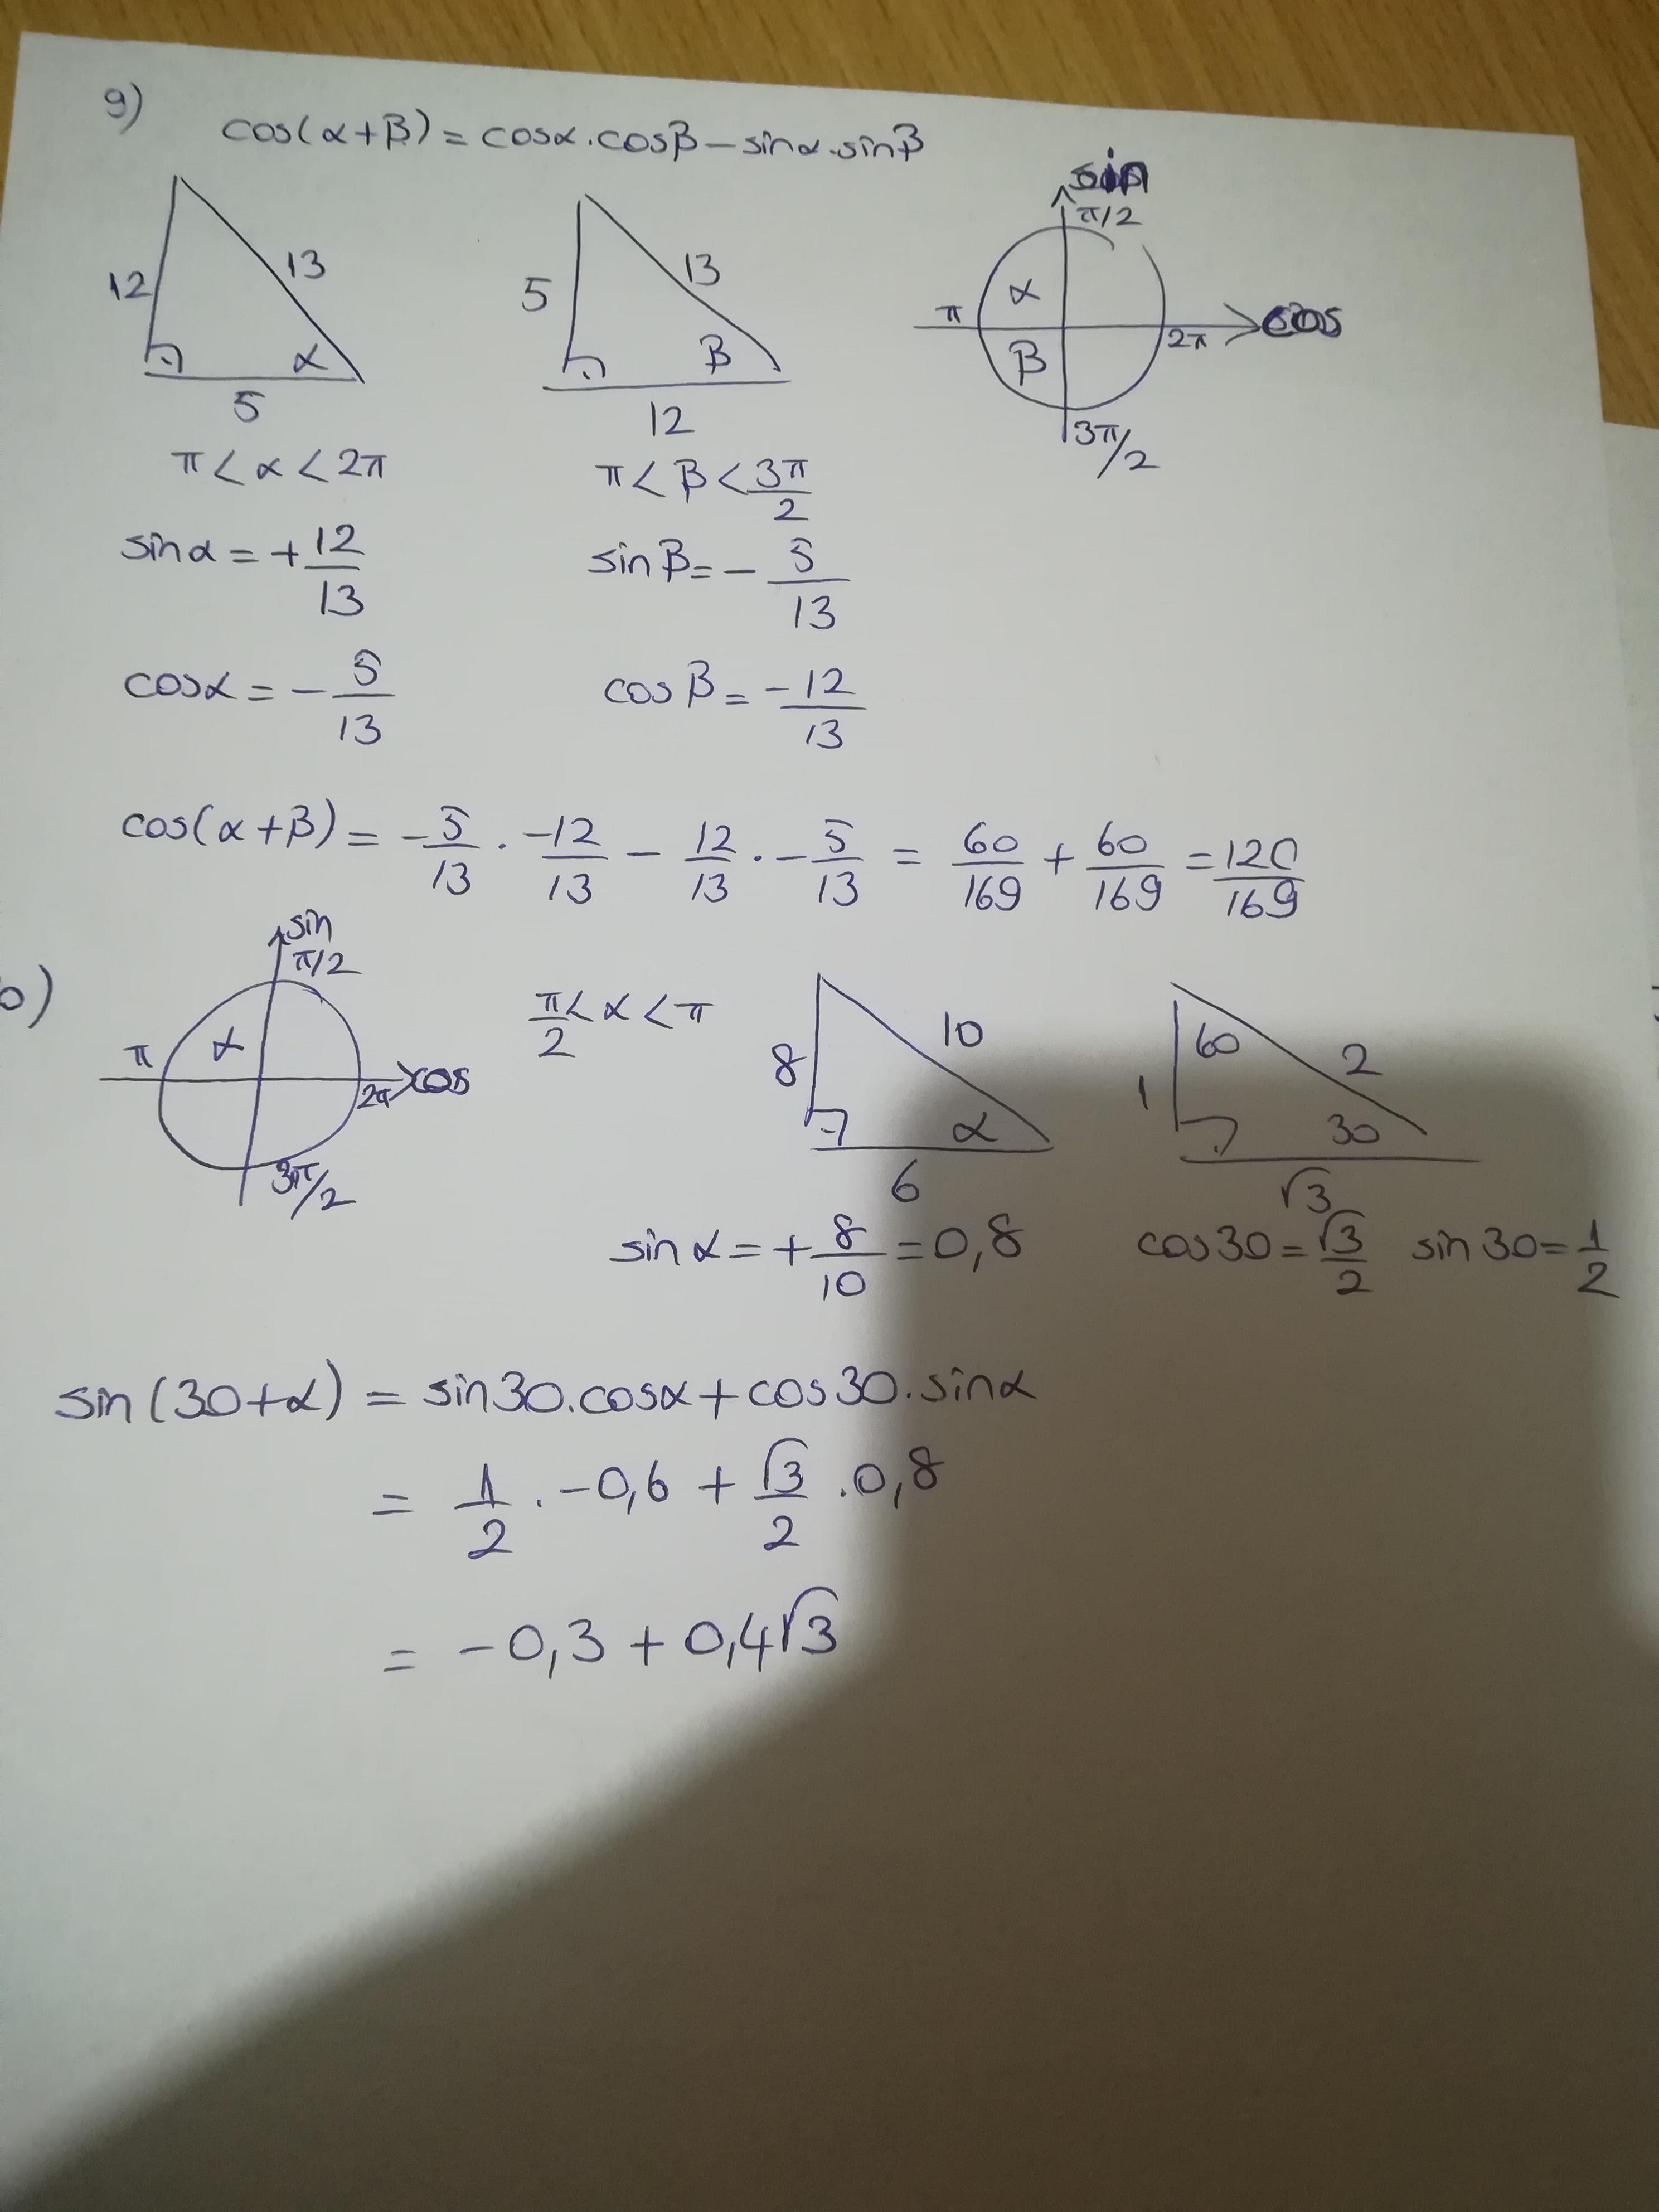 9)
cos(α+β) = cosα.cosβ - sinα.sinβ
12 13 α 5
5 13 β 12
sin π/2 α π β cos 2π 3π/2
π < α < 2π
π < β < 3π/2
sinα = + 12/13
sinβ = - 5/13
cosα = - 5/13
cosβ = -12/13
cos(α+β) = -5/13 . -12/13 - 12/13 . -5/13 = 60/169 + 60/169 = 120/169
0)
sin π/2 α π cos 2π 3π/2
π/2 < α < π
8 10 α 6
60 2 1 30 √3
sinα = + 8/10 = 0,8
cos30 = √3/2 sin30 = 1/2
sin(30+α) = sin30.cosα + cos30.sinα
= 1/2 . -0,6 + √3/2 .0,8
= -0,3 + 0,4√3